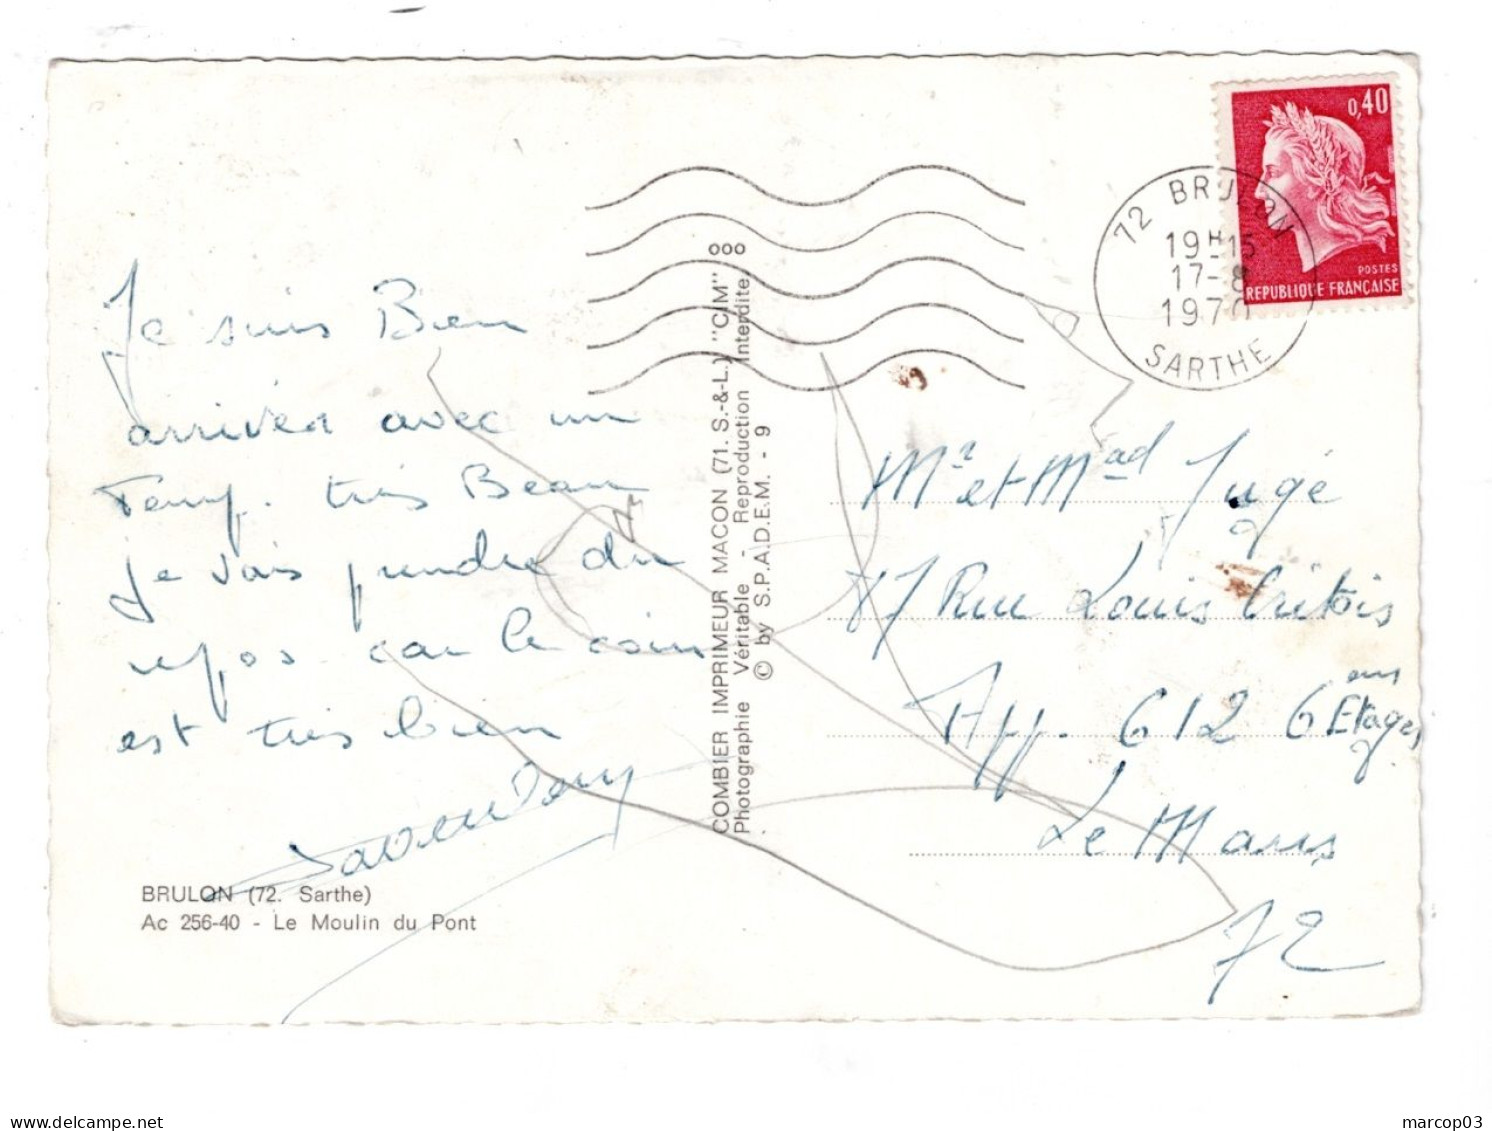 Je suis Bien
arrivée avec un
Temp. très Beau
je vais prendre du
repos car le coin
est très bien
BRULON (72. Sarthe)
Ac 256-40 - Le Moulin du Pont
COMBIER IMPRIMEUR MACON (71. S.-&-L.) "CIM" ooo
Photographie Véritable - Reproduction Interdite
© by S.P.A.D.E.M. - 9
0,40
POSTES
REPUBLIQUE FRANÇAISE
72 BRULON
19H15
17-8
1970
SARTHE
Mr et Mad Jugé
87 Rue Louis
App. 612 6 em Etages
Le Mans
72
marcop03